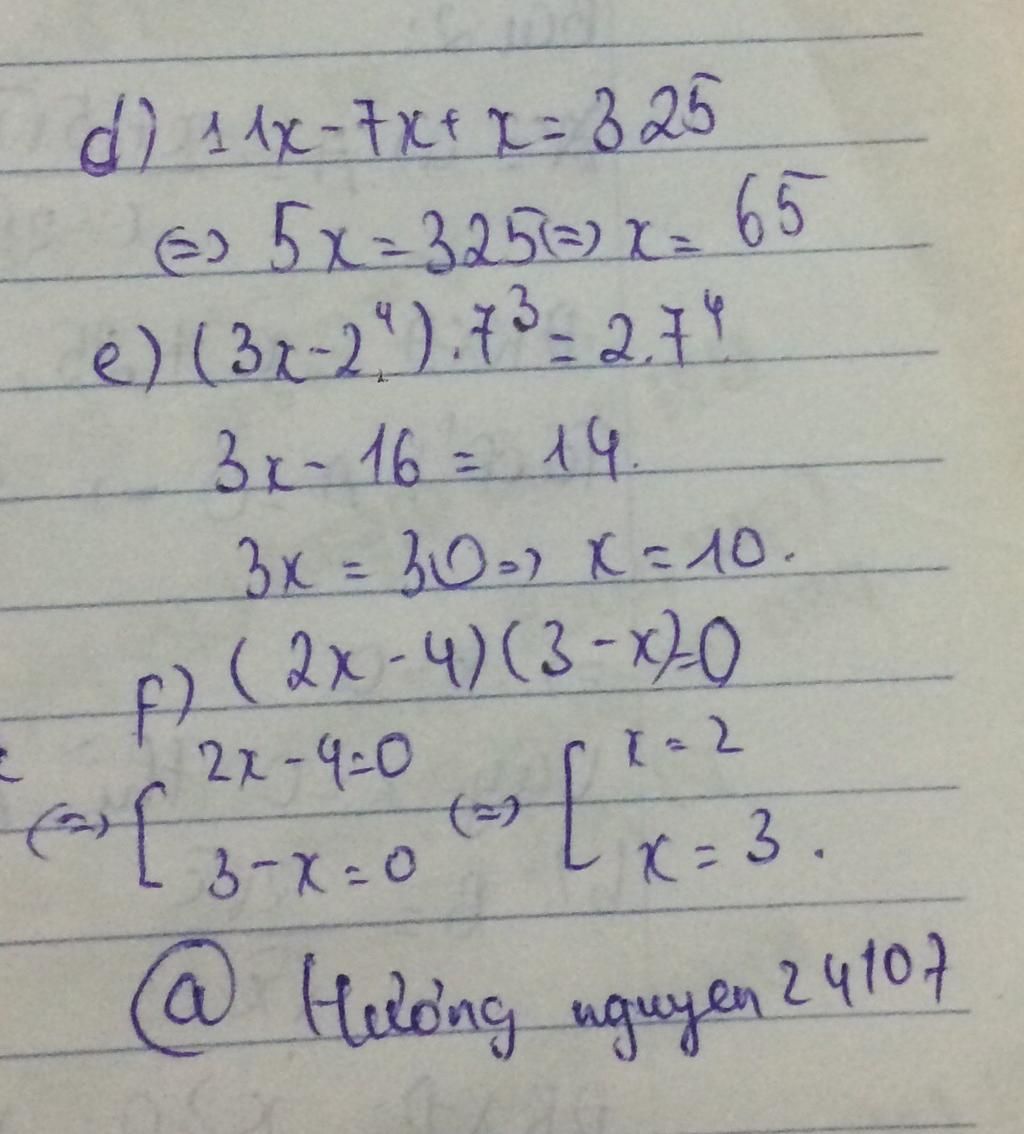 d) 11x - 7x + x = 325
(=) 5x = 325 (=) x = 65
e) (3x - 2⁴) . 7³ = 2.7⁴
3x - 16 = 14.
3x = 30 => x = 10.
f) (2x - 4)(3 - x) = 0
(=) [ 2x - 4 = 0 (=) [ x = 2
3 - x = 0 x = 3.
@ Hương nguyen 24107